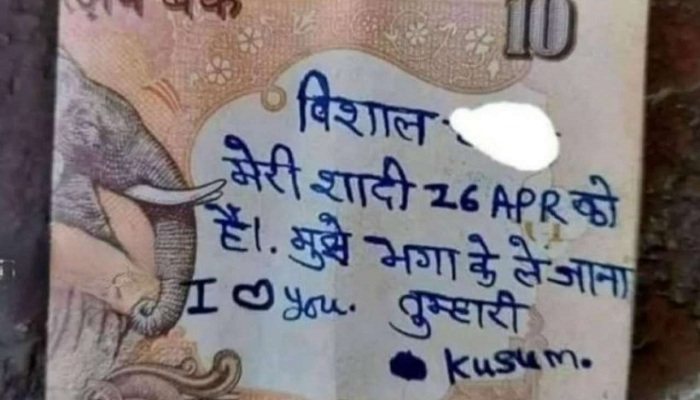 रिज़र्व बैंक
10
विशाल
मेरी शादी 26 APR को
है।. मुझे भगा के ले जाना
I ♡ you. तुम्हारी
kusum.